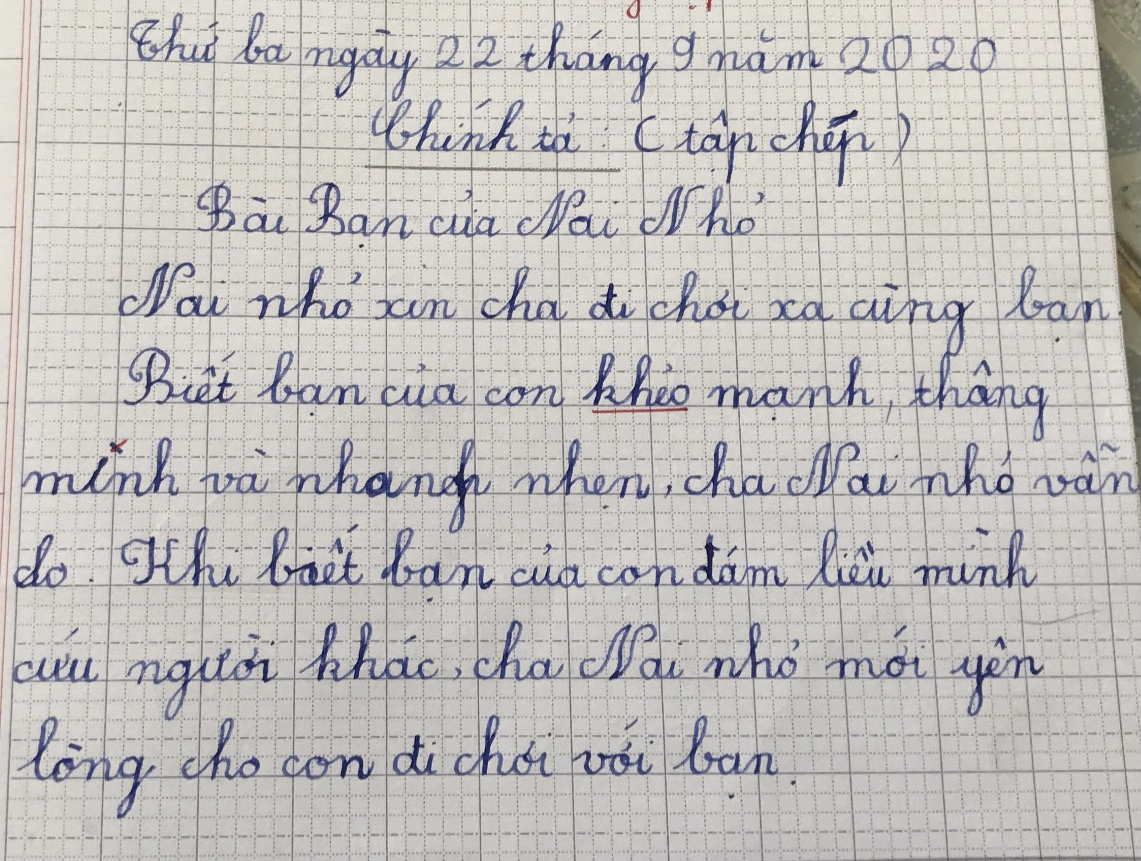 Thứ ba ngày 22 tháng 9 năm 2020
Chính tả: (tập chép)
Bài Bạn của Nai Nhỏ
Nai nhỏ xin cha đi chơi xa cùng bạn.
Biết bạn của con khẻo mạnh, thông
minh và nhanh nhẹn, cha Nai nhỏ vẫn
lo. Khi biết bạn của con dám liều mình
cứu người khác, cha Nai nhỏ mới yên
lòng cho con đi chơi với bạn.